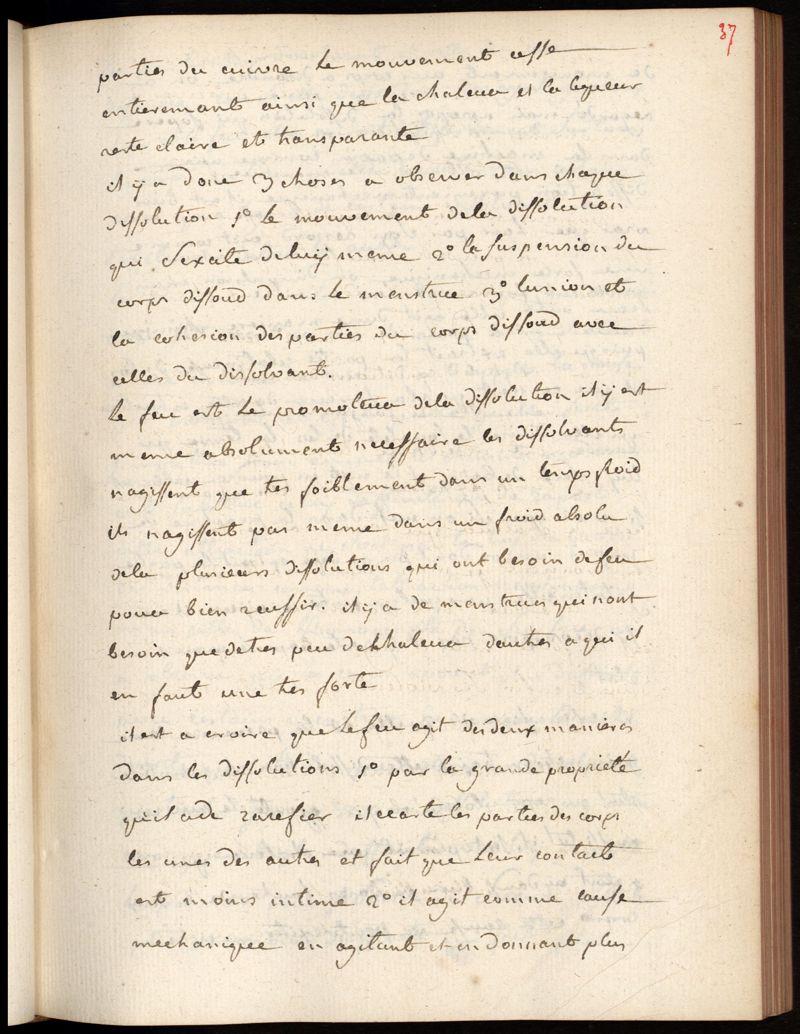 37
parties du cuivre le mouvement cesse
entieremant ainsi que la chaleur et la liqueur
reste claire et transparante
il y a donc 3 choses a observer dans chaque
dissolution 1° le mouvement dela dissolution
qui s'excite deluy meme 2° la suspension du
corps dissoud dans le menstrue 3° lunion et
la cohesion des parties du corps dissoud avec
celles du dissolvant.
le feu est le promoteur dela dissolution il y est
meme absolument necessaire les dissolvants
nagissent que tres foiblement dans un temps froid
ils nagissent pas meme dans un froid absolu
dela plusieurs dissolutions qui ont besoin de feu
pour bien reussir. il y a de menstrues qui nont
besoin que de tres peu de chaleur dautres a qui il
en faut une tres forte
il est a croire que le feu agit des deux manieres
dans les dissolutions 1° par la grande proprieté
quil a de rarefier il ecarte les parties des corps
les unes des autres et fait que leur contact
est moins intime 2° il agit comme cause
mechanique en agitant et en donnant plus